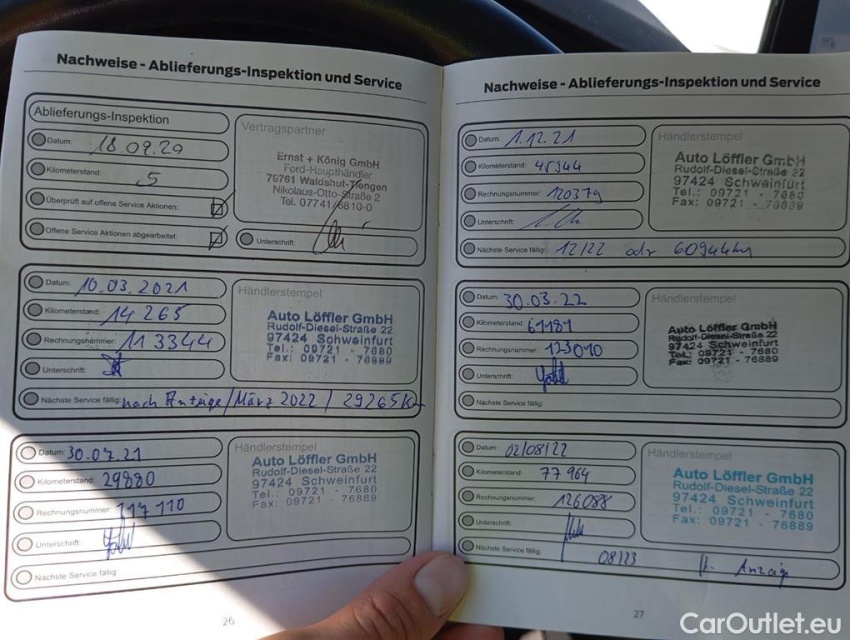 Nachweise - Ablieferungs-Inspektion und Service
Ablieferungs-Inspektion
Datum: 18.09.20
Kilometerstand: 5
Überprüft auf offene Service Aktionen:
Offene Service Aktionen abgearbeitet:
Vertragspartner
Ernst + König GmbH
Ford-Haupthändler
79761 Waldshut-Tiengen
Nikolaus-Otto-Straße 2
Tel. 07741/6810-0
Unterschrift:
Datum: 10.03.2021
Kilometerstand: 14 265
Rechnungsnummer: 113344
Unterschrift:
Händlerstempel
Auto Löffler GmbH
Rudolf-Diesel-Straße 22
97424 Schweinfurt
Tel.: 09721 - 7680
Fax: 09721 - 76889
Nächste Service fällig: nach Anzeige/März 2022 / 29265 Km
Datum: 30.07.21
Kilometerstand: 29880
Rechnungsnummer: 117 110
Unterschrift:
Nächste Service fällig:
Händlerstempel
Auto Löffler GmbH
Rudolf-Diesel-Straße 22
97424 Schweinfurt
Tel.: 09721 - 7680
Fax: 09721 - 76889
26
Nachweise - Ablieferungs-Inspektion und Service
Datum: 1.12.21
Kilometerstand: 45944
Rechnungsnummer: 120379
Unterschrift:
Händlerstempel
Auto Löffler GmbH
Rudolf-Diesel-Straße 22
97424 Schweinfurt
Tel.: 09721 - 7680
Fax: 09721 - 76889
Nächste Service fällig: 12/22 odr 60944km
Datum: 30.03.22
Kilometerstand: 61181
Rechnungsnummer: 123010
Unterschrift:
Nächste Service fällig:
Händlerstempel
Auto Löffler GmbH
Rudolf-Diesel-Straße 22
97424 Schweinfurt
Tel.: 09721 - 7680
Fax: 09721 - 76889
Datum: 02/08/22
Kilometerstand: 77 964
Rechnungsnummer: 126088
Unterschrift:
Händlerstempel
Auto Löffler GmbH
Rudolf-Diesel-Straße 22
97424 Schweinfurt
Tel.: 09721 - 7680
Fax: 09721 - 76889
Nächste Service fällig: 08/23 Anzeige
27
CarOutlet.eu